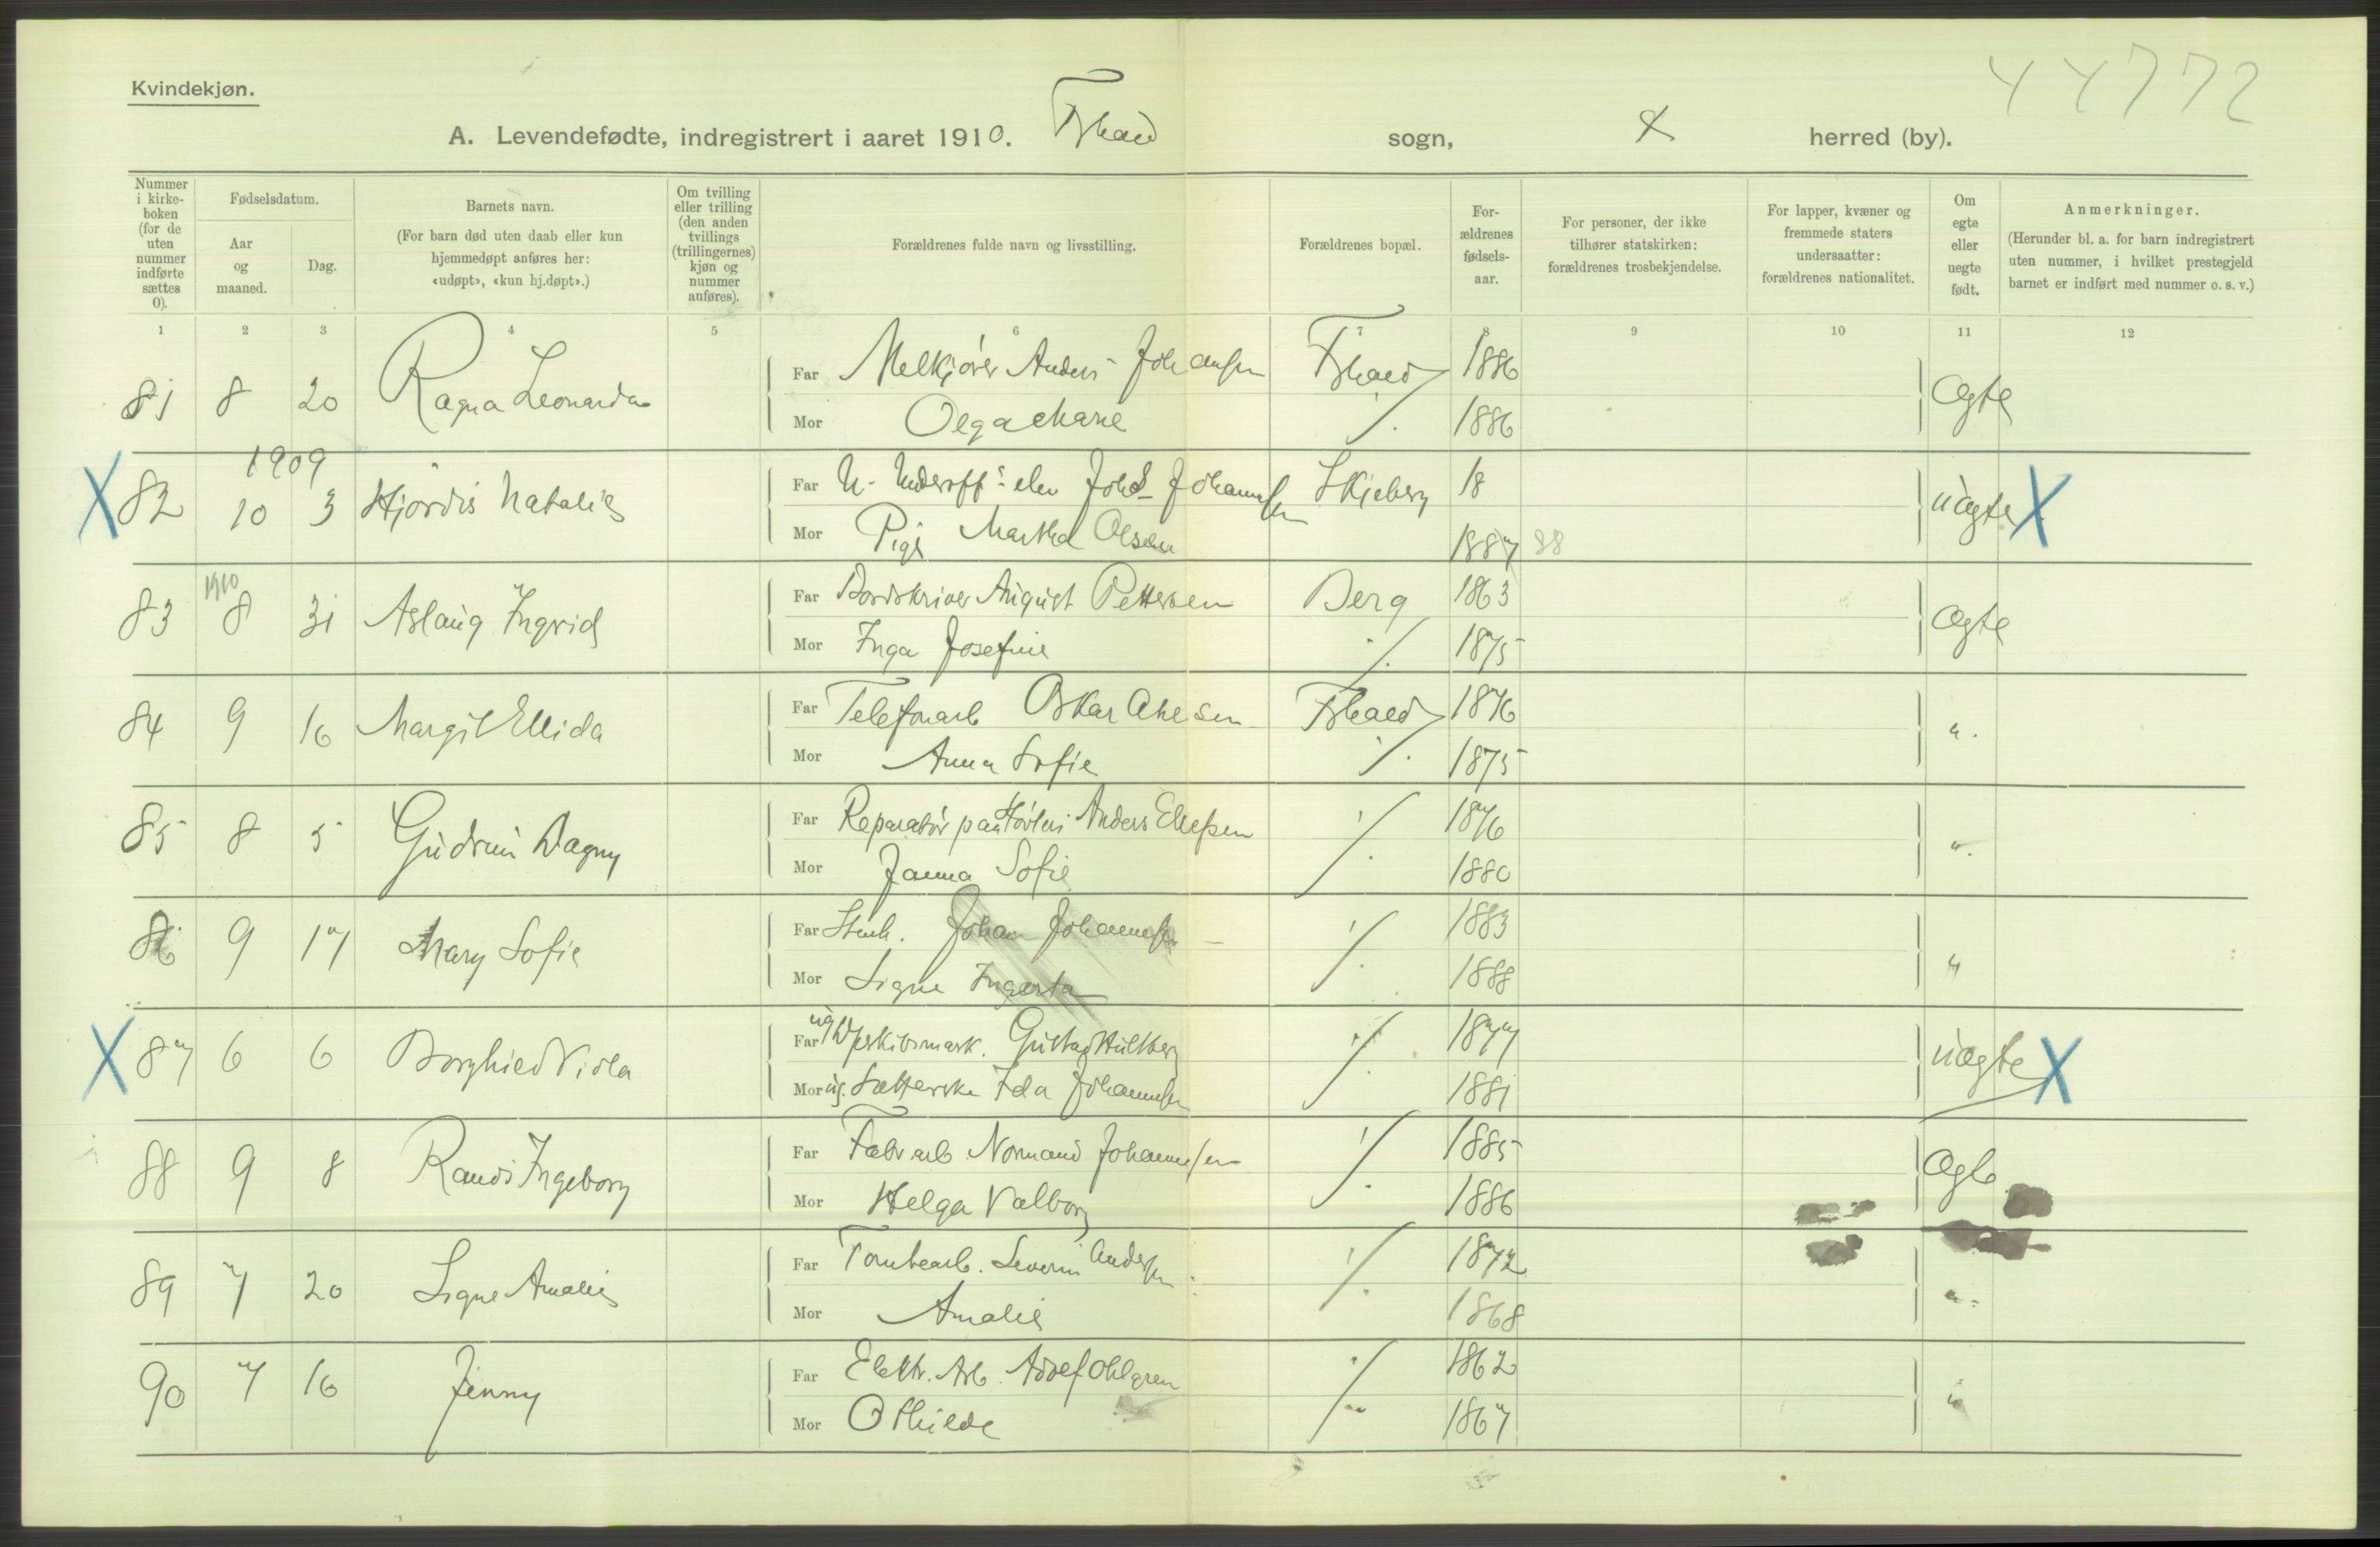 Kvindekjøn.
44772
A. Levendefødte, indregistrert i aaret 1910. Fhald sogn, X herred (by).
Nummer i kirke-boken (for de uten nummer indførte sættes 0).
Fødselsdatum.
Aar og maaned.
Dag.
Barnets navn.
(For barn død uten daab eller kun hjemmedøpt anføres her: «udøpt», «kun hj.døpt».)
Om tvilling eller trilling (den anden tvillings (trillingernes) kjøn og nummer anføres).
Forældrenes fulde navn og livsstilling.
Forældrenes bopæl.
For-ældrenes fødsels-aar.
For personer, der ikke tilhører statskirken: forældrenes trosbekjendelse.
For lapper, kvæner og fremmede staters undersaatter: forældrenes nationalitet.
Om egte eller uegte født.
Anmerkninger.
(Herunder bl. a. for barn indregistrert uten nummer, i hvilket prestegjeld barnet er indført med nummer o. s. v.)
1 2 3 4 5 6 7 8 9 10 11 12
81 8 20 Ragna Leonarda Far Melkjører Anders Johansen Fhald 1886 Ægte
Mor Olga Marie ./. 1886
1909
X 82 10 3 Hjördis Natalie Far U. Underoff: elev Johs Johannessen Skjeberg 18 Uægte X
Mor Pige Martha Olsen 1887 88
1910
83 8 31 Aslaug Ingrid Far Bordskriver August Pettersen Berg 1863 Ægte
Mor Inga Josefine ./. 1875
84 9 16 Margit Ellida Far Telefonarb Oskar Olesen Fhald 1876 " .
Mor Anna Sofie ./. 1875
85 8 5 Gudrun Dagny Far Reparatör Anders Ellefsen ./. 1876 " .
Mor Janna Sofie 1880
86 9 17 Mary Sofie Far Stenh. Johan Johannessen ./. 1883 "
Mor Signe Ingarta 1888
X 87 6 6 Borghild Viola Far ug Gustav Hultberg ./. 1877 Uægte X
Mor ug. Ida Johannesen 1881
88 9 8 Randi Ingeborg Far Fabrarb Normand Johannessen ./. 1885 Ægte
Mor Helga Valborg 1886
89 7 20 Signe Amalie Far Tomtearb. Severin Andersen ./. 1872 " -
Mor Amalie 1868
90 7 16 Jenny Far Elektr. Arb. Adolf Ohlgren ./. 1862 "
Mor Othilde 1867